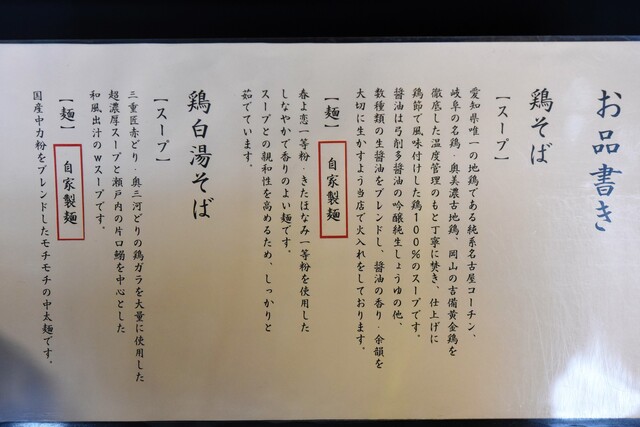 お品書き
鶏そば
【スープ】
愛知県唯一の地鶏である純系名古屋コーチン、
岐阜の名鶏・奥美濃古地鶏、岡山の吉備黄金鶏を
徹底した温度管理のもと丁寧に焚き、仕上げに
鶏節で風味付けした鶏100%のスープです。
醤油は弓削多醤油の吟醸純生しょうゆの他、
数種類の生醤油をブレンドし、醤油の香り・余韻を
大切に生かすよう当店で火入れをしております。
【麺】 自家製麺
春よ恋一等粉・きたほなみ一等粉を使用した
しなやかで香りのよい麺です。
スープとの親和性を高めるため、しっかりと
茹でています。
鶏白湯そば
【スープ】
三重匠赤どり・奥三河どりの鶏ガラを大量に使用した
超濃厚スープと瀬戸内の片口鰯を中心とした
和風出汁のWスープです。
【麺】 自家製麺
国産中力粉をブレンドしたモチモチの中太麺です。